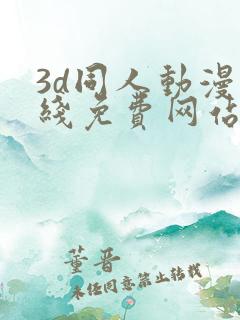 3d同人動漫
綫免費网站
董晋
未经同意禁止转载